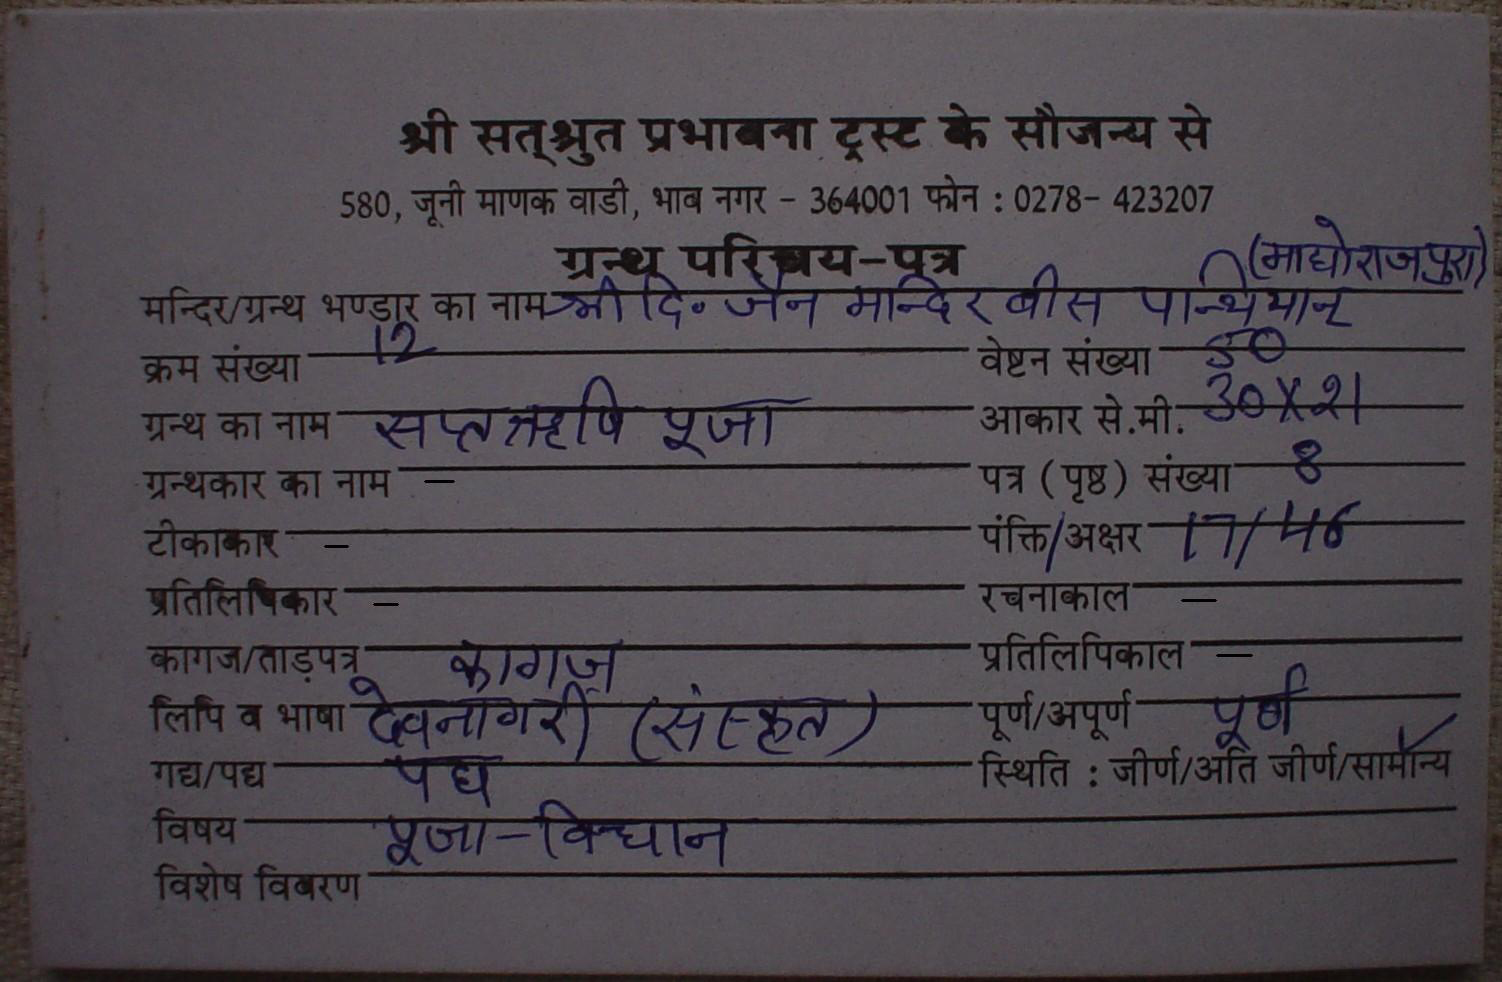 श्री सत्श्रुत प्रभावना ट्रस्ट के सौजन्य से
580, जूनी माणक वाडी, भाव नगर - 364001 फोन : 0278- 423207
ग्रन्थ परिचय-पत्र (माधोराजपुरा)
मन्दिर/ग्रन्थ भण्डार का नाम श्री दि॰ जैन मन्दिर बीस पन्थियान
क्रम संख्या 12 वेष्टन संख्या 50
ग्रन्थ का नाम सप्तऋषि पूजा आकार से.मी. 30X21
ग्रन्थकार का नाम — पत्र (पृष्ठ) संख्या 8
टीकाकार — पंक्ति/अक्षर 17/46
प्रतिलिपिकार — रचनाकाल —
कागज/ताड़पत्र कागज प्रतिलिपिकाल —
लिपि व भाषा देवनागरी (संस्कृत) पूर्ण/अपूर्ण पूर्ण
गद्य/पद्य पद्य स्थिति : जीर्ण/अति जीर्ण/सामान्य ✓
विषय पूजा-विधान
विशेष विवरण